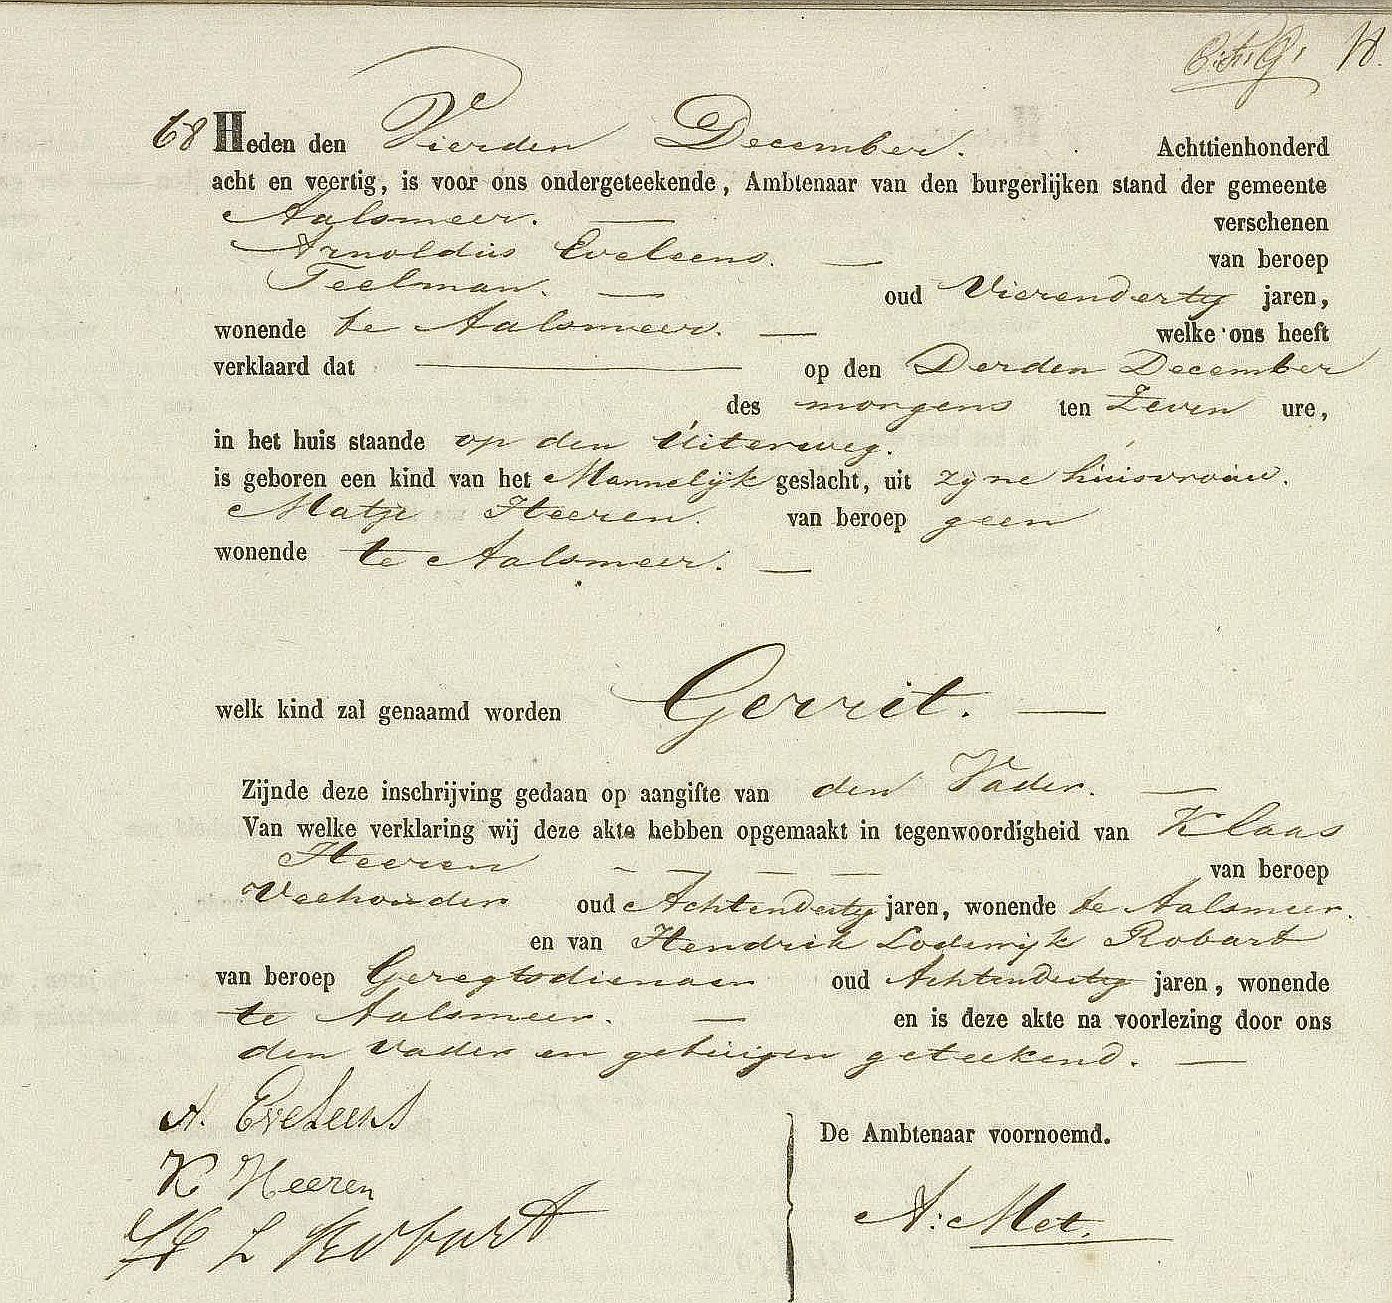 68 Heden den Vierden December. Achttienhonderd
acht en veertig, is voor ons ondergeteekende, Ambtenaar van den burgerlijken stand der gemeente
Aalsmeer. — verschenen
Arnoldus Eveleens. — van beroep
Teelman. — oud Vierendertig jaren,
wonende te Aalsmeer. — welke ons heeft
verklaard dat — op den Derden December
des morgens ten Zeven ure,
in het huis staande op den Uiterweg.
is geboren een kind van het Mannelijk geslacht, uit zijne huisvrouw.
Matje Heeren. van beroep geen
wonende te Aalsmeer. —
welk kind zal genaamd worden Gerrit. —
Zijnde deze inschrijving gedaan op aangifte van den Vader. —
Van welke verklaring wij deze akte hebben opgemaakt in tegenwoordigheid van Klaas
Heeren — — — — van beroep
Veehouder oud Achtendertig jaren, wonende te Aalsmeer.
en van Hendrik Lodewijk Robart
van beroep Geregtsdienaar oud Achtendertig jaren, wonende
te Aalsmeer. — en is deze akte na voorlezing door ons
den vader en getuigen geteekend. —
A. Eveleens
De Ambtenaar voornoemd.
K Heeren
H L Robart
A: Met.